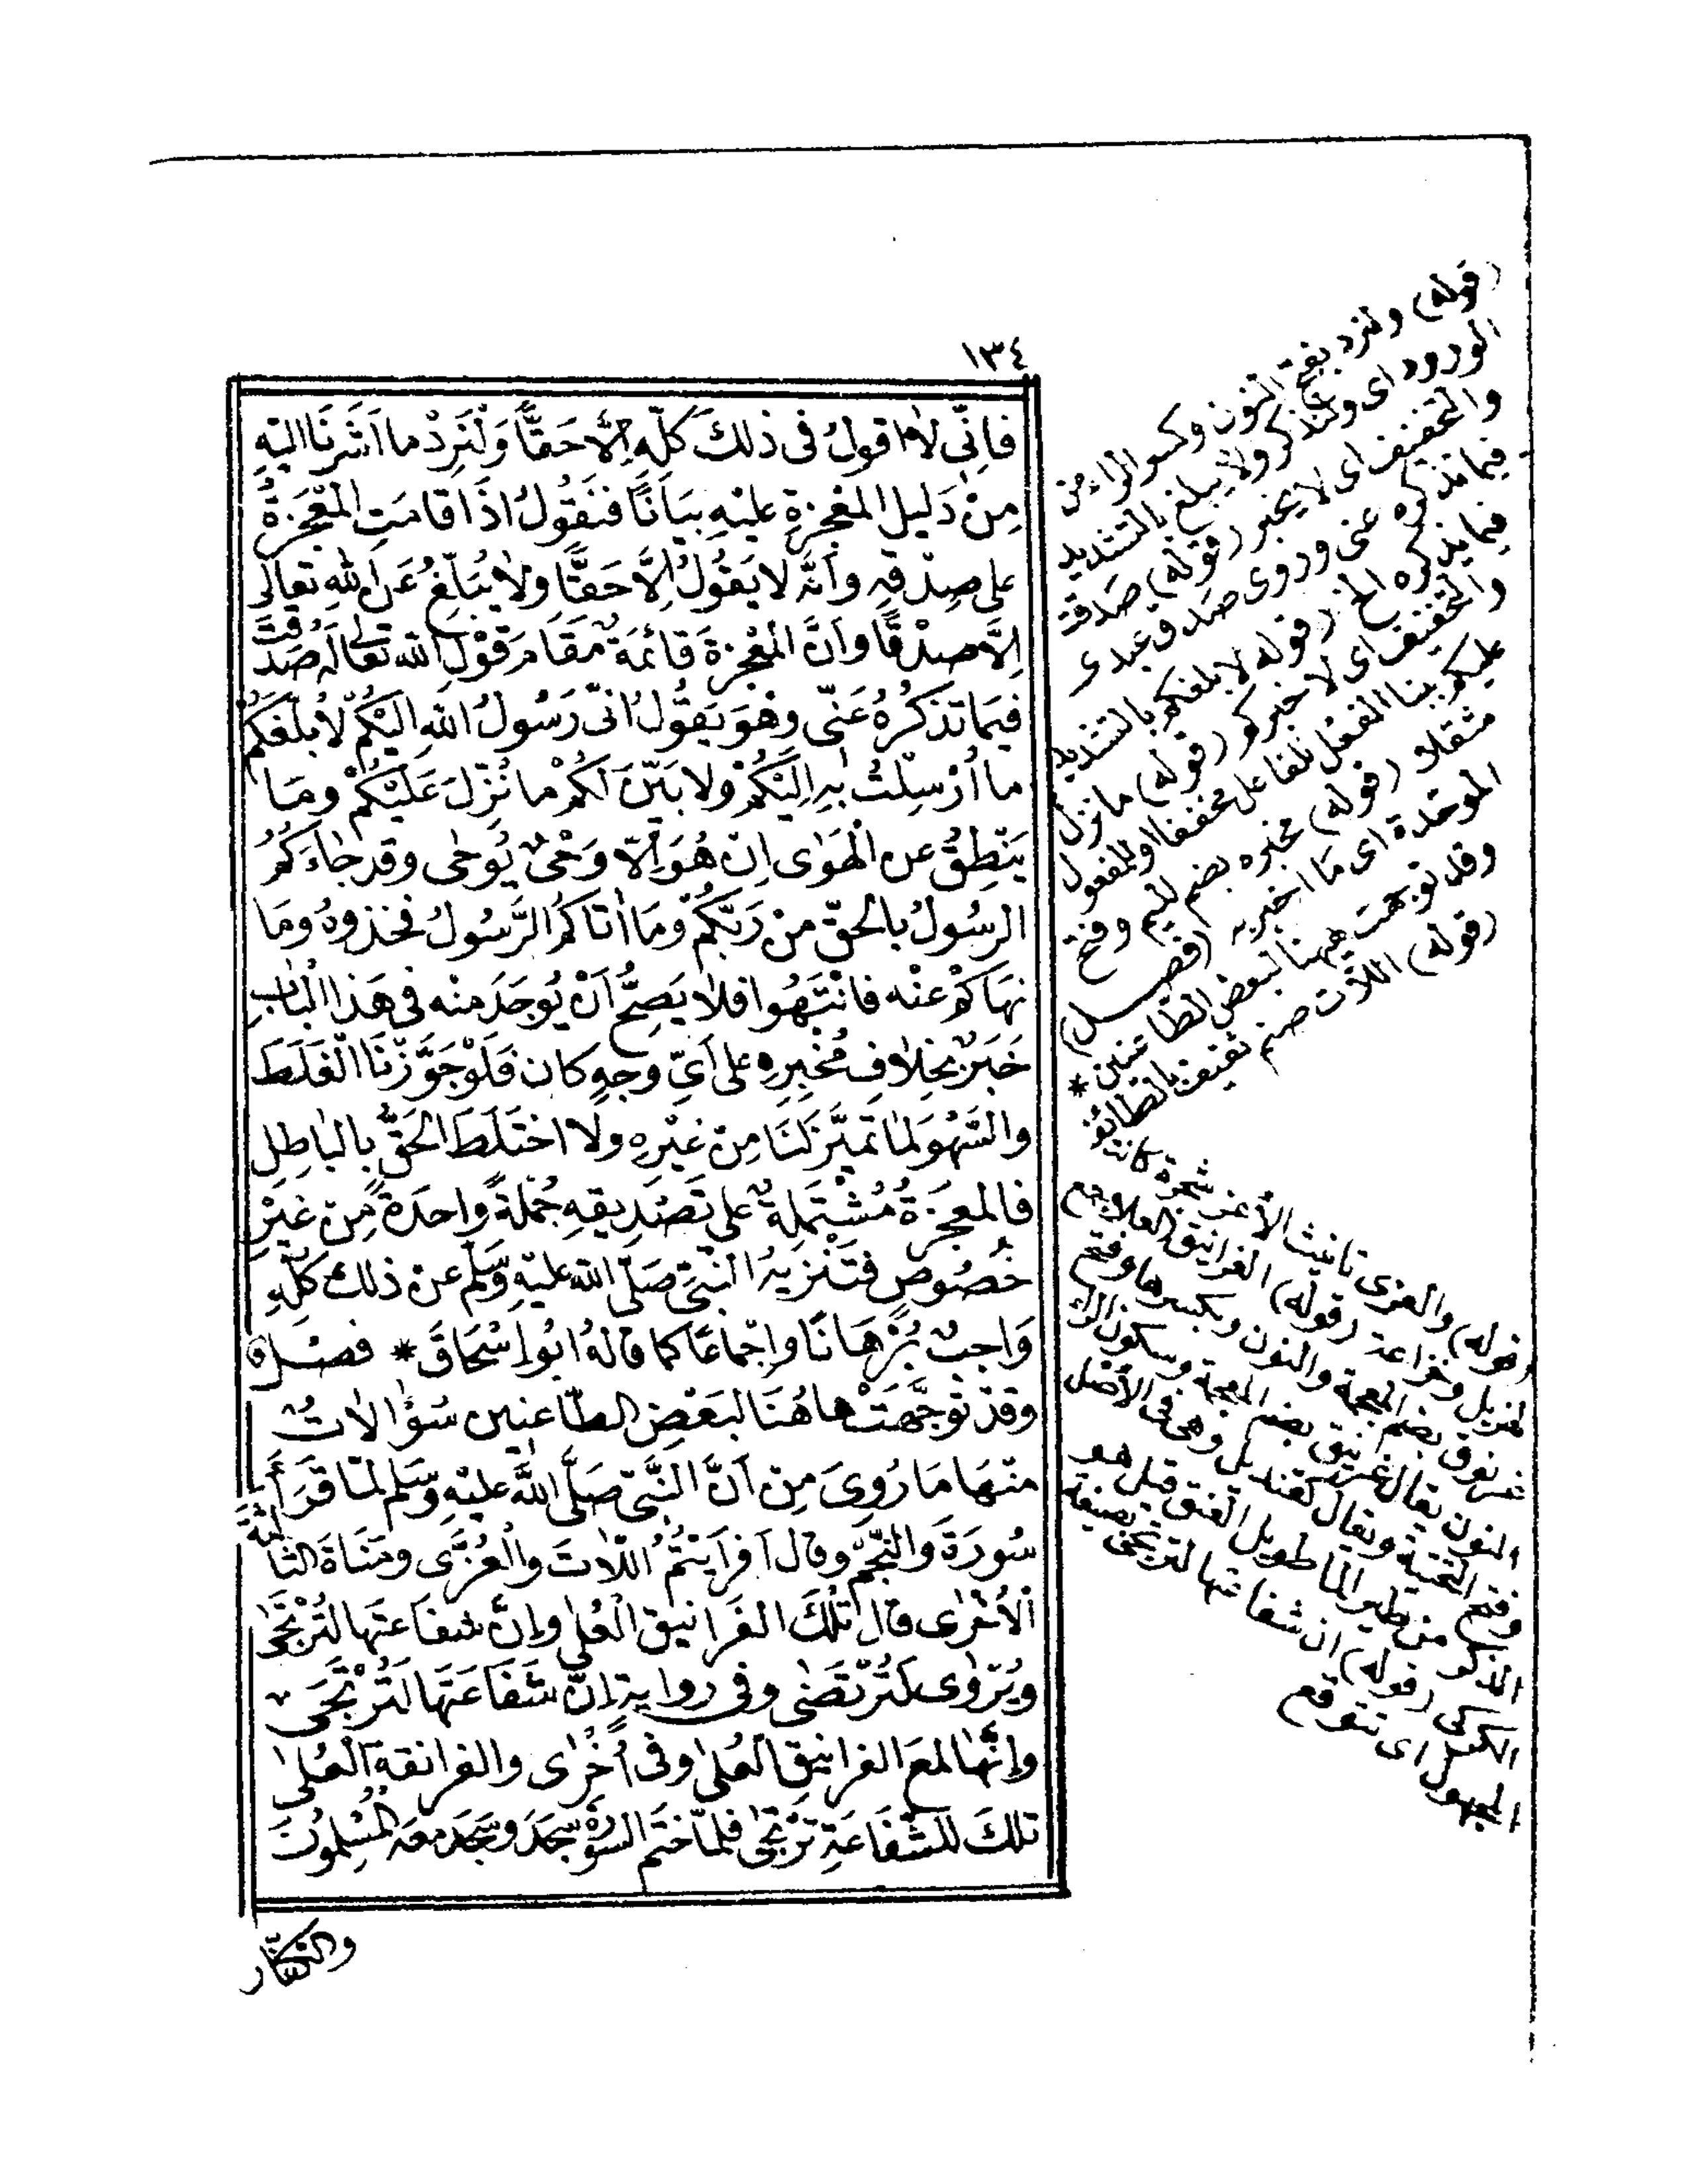 ١٣٤
فَاِنِّي لَا اَقُولُ فى ذٰلِكَ كُلِّهِ اِلَّا حَقًّا وَلْنَزِدْ ما اَشَرْنَا اليْهِ
مِنْ دَلِيلِ المُعْجِزَةِ عليْهِ بيَانًا فنَقُولُ اذَا قامَتِ المُعْجِزَةُ
على صِدْقِهِ وأنَّه لا يَقُولُ اِلَّا حَقًّا ولَا يُبَلِّغُ عَنِ اللهِ تعالى
اِلَّا صِدْقًا وأنَّ المُعْجِزَةَ قَائِمَةٌ مَقَامَ قَوْلِ الله تعالى لَهُ صَدَقْتَ
فِيمَا تَذْكُرُهُ عَنّى وهُوَ يَقُولُ انّى رَسُولُ اللهِ اليْكُمْ لِأُبَلِّغَكُمْ
ما أُرْسِلْتُ بهِ اِلَيْكُمْ ولأبَيِّنَ لَكُمْ ما نُزِّلَ عَلَيْكُمْ ومَا
يَنْطِقُ عن الْهَوٰى اِنْ هُوَ اِلَّا وَحْىٌ يُوحٰى وقد جَاءَكُمُ
الرسُولُ بالحقّ منْ رَبّكُمْ ومَا أتَاكُمُ الرَّسُولُ فَخُذوهُ ومَا
نهَاكُمْ عَنْه فانْتَهُوا فلا يَصِحُّ أنْ يُوجَدَ منْه فى هَذا الْبَابِ
خَبَرٌ بخِلَافِ مُخْبَرِهِ على أىِّ وجهٍ كان فَلَوْ جَوَّزْنَا الْغَلَطَ
والسَّهْوَ لمَا تَمَيَّزَ لنَا مِنْ غيْرِهِ ولَا اخْتَلَطَ الحَقُّ بالباطِلِ
فالمعجزةُ مُشْتَمِلَةٌ على تَصْدِيقِهِ جُمْلَةً واحِدَةً مِنْ غيْرِ
خُصُوصٍ فَتَنْزِيهُ النّبىِّ صَلّى الله عليْهِ وسَلّم عنْ ذلك كلِّهِ
وَاجِبٌ بُرْهَانًا واِجْمَاعًا كما قالهُ ابُو اِسْحَاقَ * فصْلٌ
وقدْ تَوجَّهَتْ هاهُنَا لبَعْضِ الطّاعنِين سُؤَالَاتٌ
منْهَا مَا رُوِىَ مِنْ اَنَّ النَّبىّ صَلَّى اللهُ عليْهِ وسَلم لمّا قَرَأَ
سُورَةَ والنّجْمِ وقال اَفَرَأيْتُمُ اللّاتَ والْعُزَّى ومَنَاةَ الثالثَةَ
الْاُخْرٰى قال تلْكَ الغَرَانيقُ الْعُلٰى وإنَّ شفاعتَهَا لتُرْتَجٰى
ويُرْوٰى لتُرْتَضٰى وفى روايةٍ إنّ شَفَاعَتَهَا لتُرْتَجَى
وإنّهَا لمعَ الغرانيقِ العُلٰى وفى أُخْرٰى والغرانقةُ العُلٰى
تلكَ للشّفَاعَةِ تُرْتَجٰى فلمّا ختَم السّورَةَ سَجَدَ وسَجَدَ معَه المُسْلِمُونَ
والكفّار
(قوله) ولنزد بفتح النون وكسر الراء من
الورود اى ولنذكر ولا يبلغ بالتشديد
والتخفيف اى لا يخبر (قوله) صدقت
فيما تذكره عنى وروى صدق عبدى
فيما يذكره الخ (قوله) لابلغكم بالتشديد
والتخفيف اى لاخبركم (قوله) ما نزل
عليكم بنا الفعل للفاعل مخففا او للمفعول
مثقلا (قوله) مخبره بضم الميم وفتح
الموحدة اى ما اخبر به (فصل)
وقد توجهت ههنا لبعض الطاعنين *
(قوله) اللات صنم ثقيف بالطائف
(قوله) والعزى تانيث الأعز شجرة كانت
(قوله) الغرانيق العلا جمع
غرنوق بضم المعجمة والنون وبكسرها وفتح
النون يقال غرنيق بضم المعجمة وسكون الراء
وفتح التحتية ويقال كقنديل وهى فى الأصل
الذكر من طير الما طويل العنق قيل هو
الكركى (قوله) ان شفاعتها لترتجى بصيغة
المجهول اى تتوقع